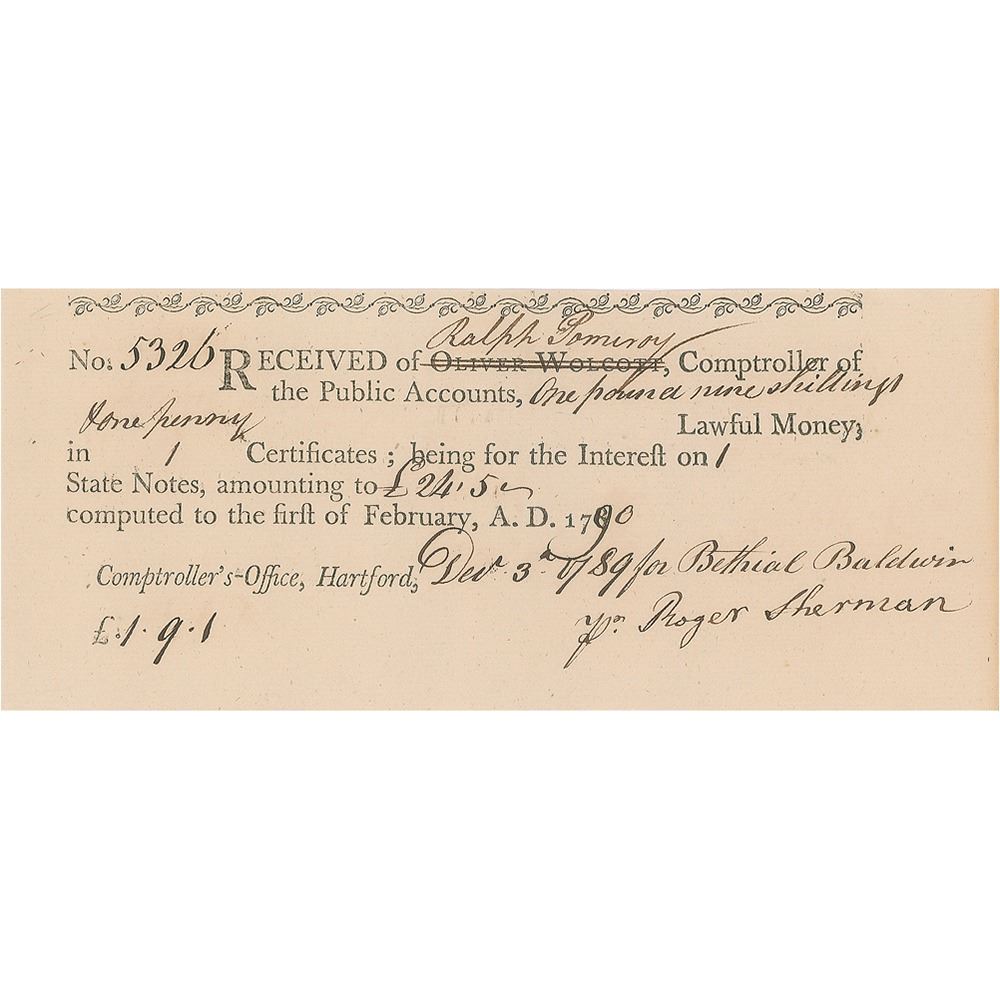 Ralph Pomeroy
No. 5326 RECEIVED of OLIVER WOLCOTT, Comptroller of
the Public Accounts, One pound nine shillings
& one penny Lawful Money;
in 1 Certificates ; being for the Intereſt on 1
State Notes, amounting to £24,5
computed to the firſt of February, A. D. 1790
Comptroller's-Office, Hartford, Decr 3d 1789 for Bethial Baldwin
£.1.9.1 pr Roger Sherman